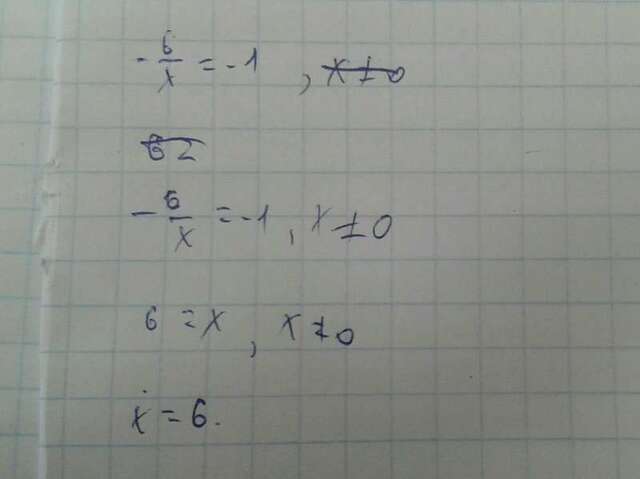 -6/x = -1 , x≠0
6 =
-6/x = -1 , x≠0
6 = x , x≠0
x = 6.